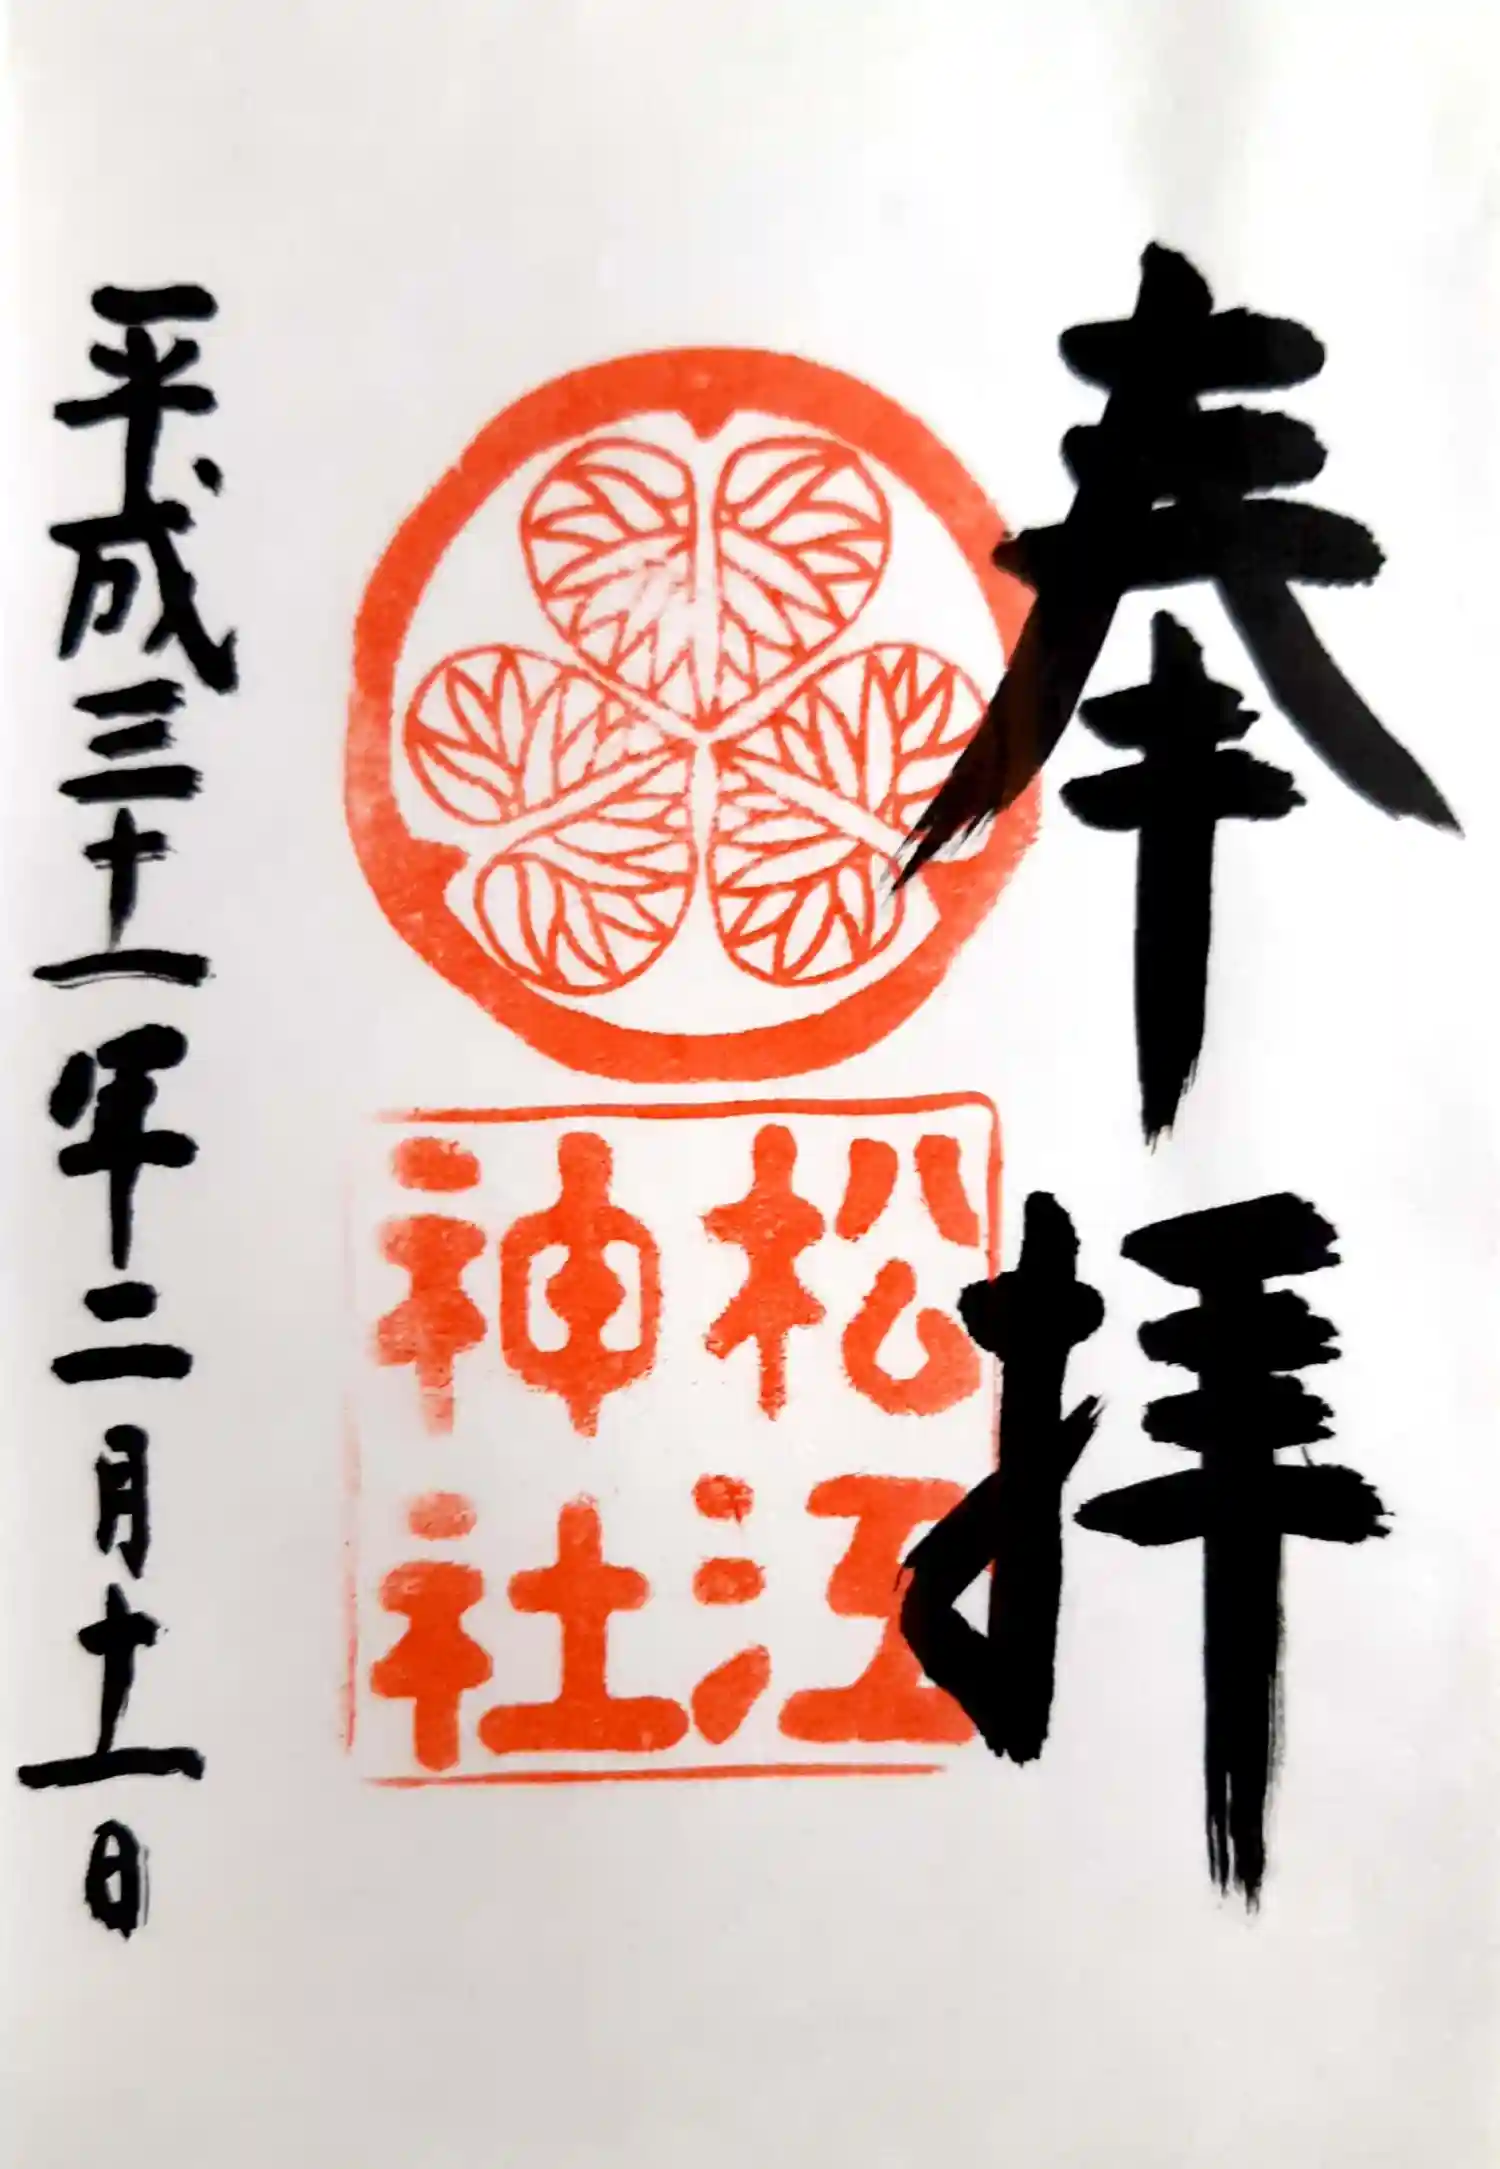 奉拝
松江
神社
平成三十一年二月十一日